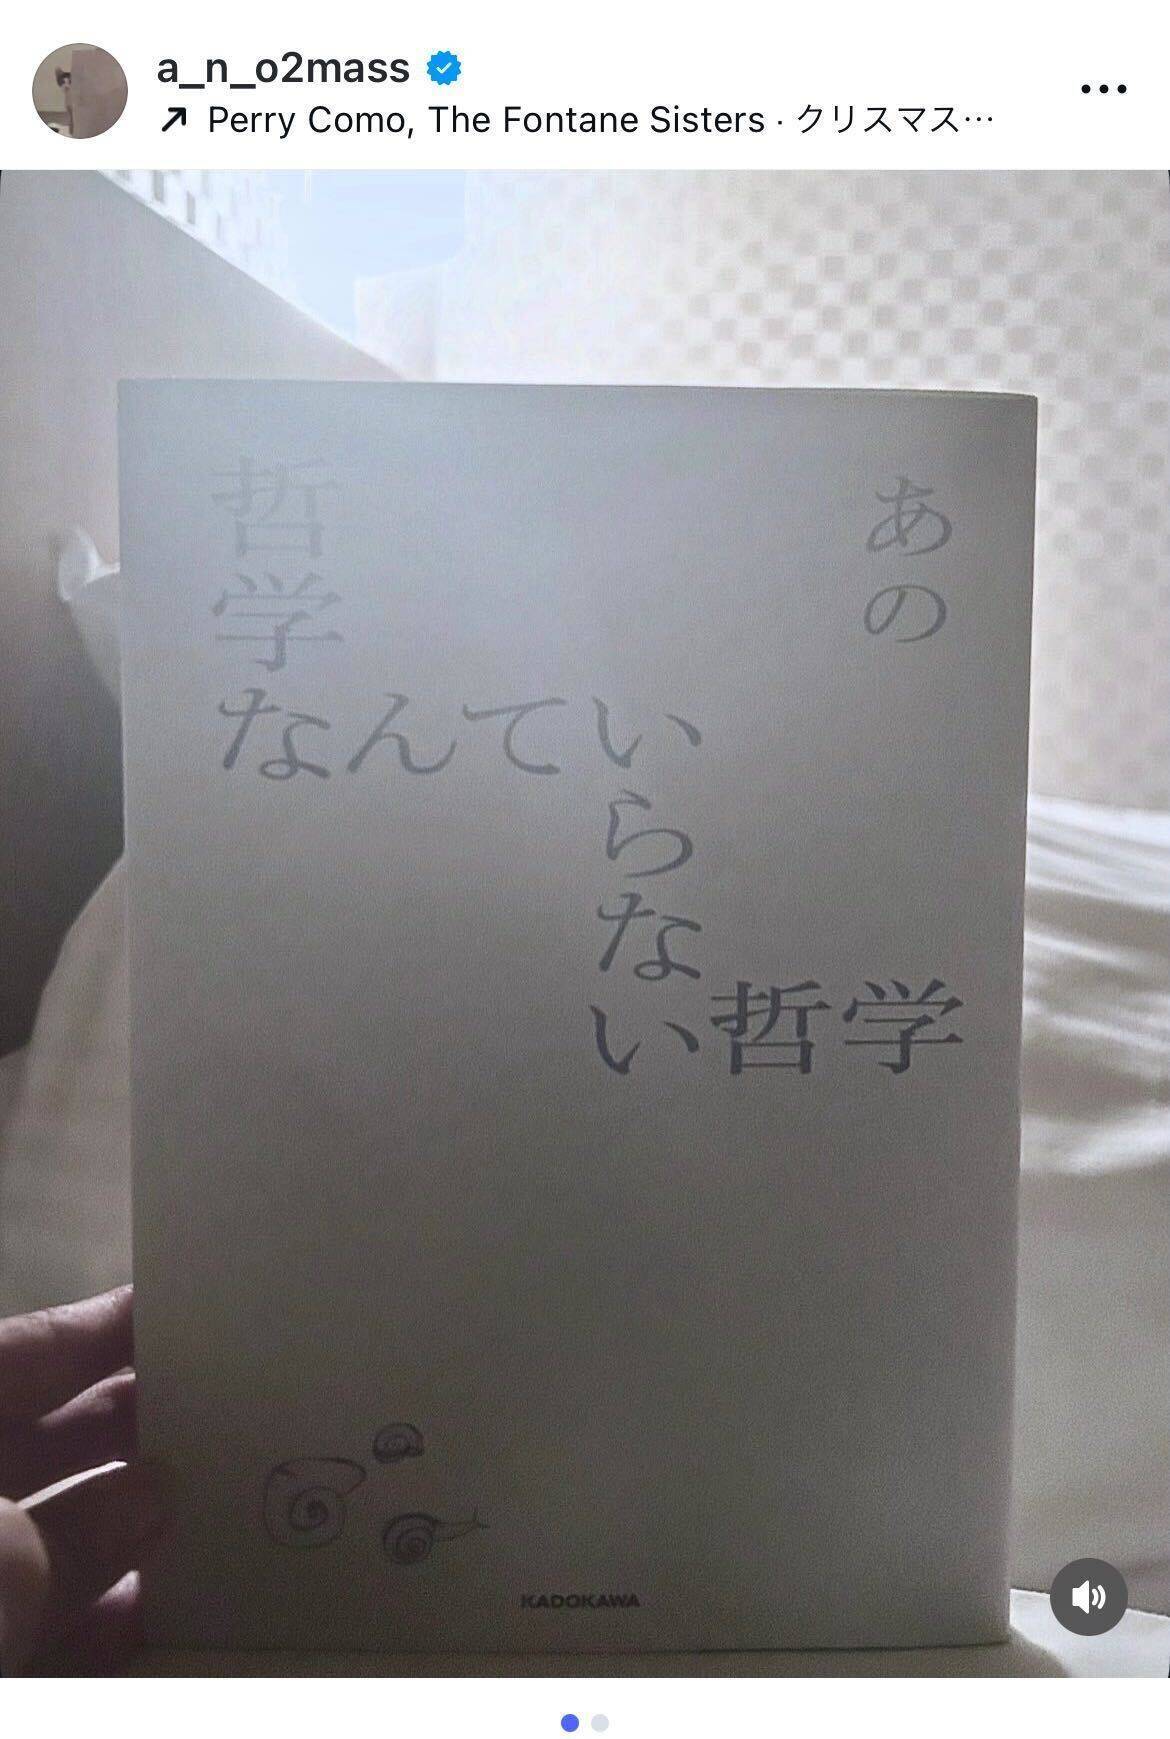 a_n_o2mass
Perry Como, The Fontane Sisters · クリスマス…
あの
哲学なんていらない哲学
KADOKAWA